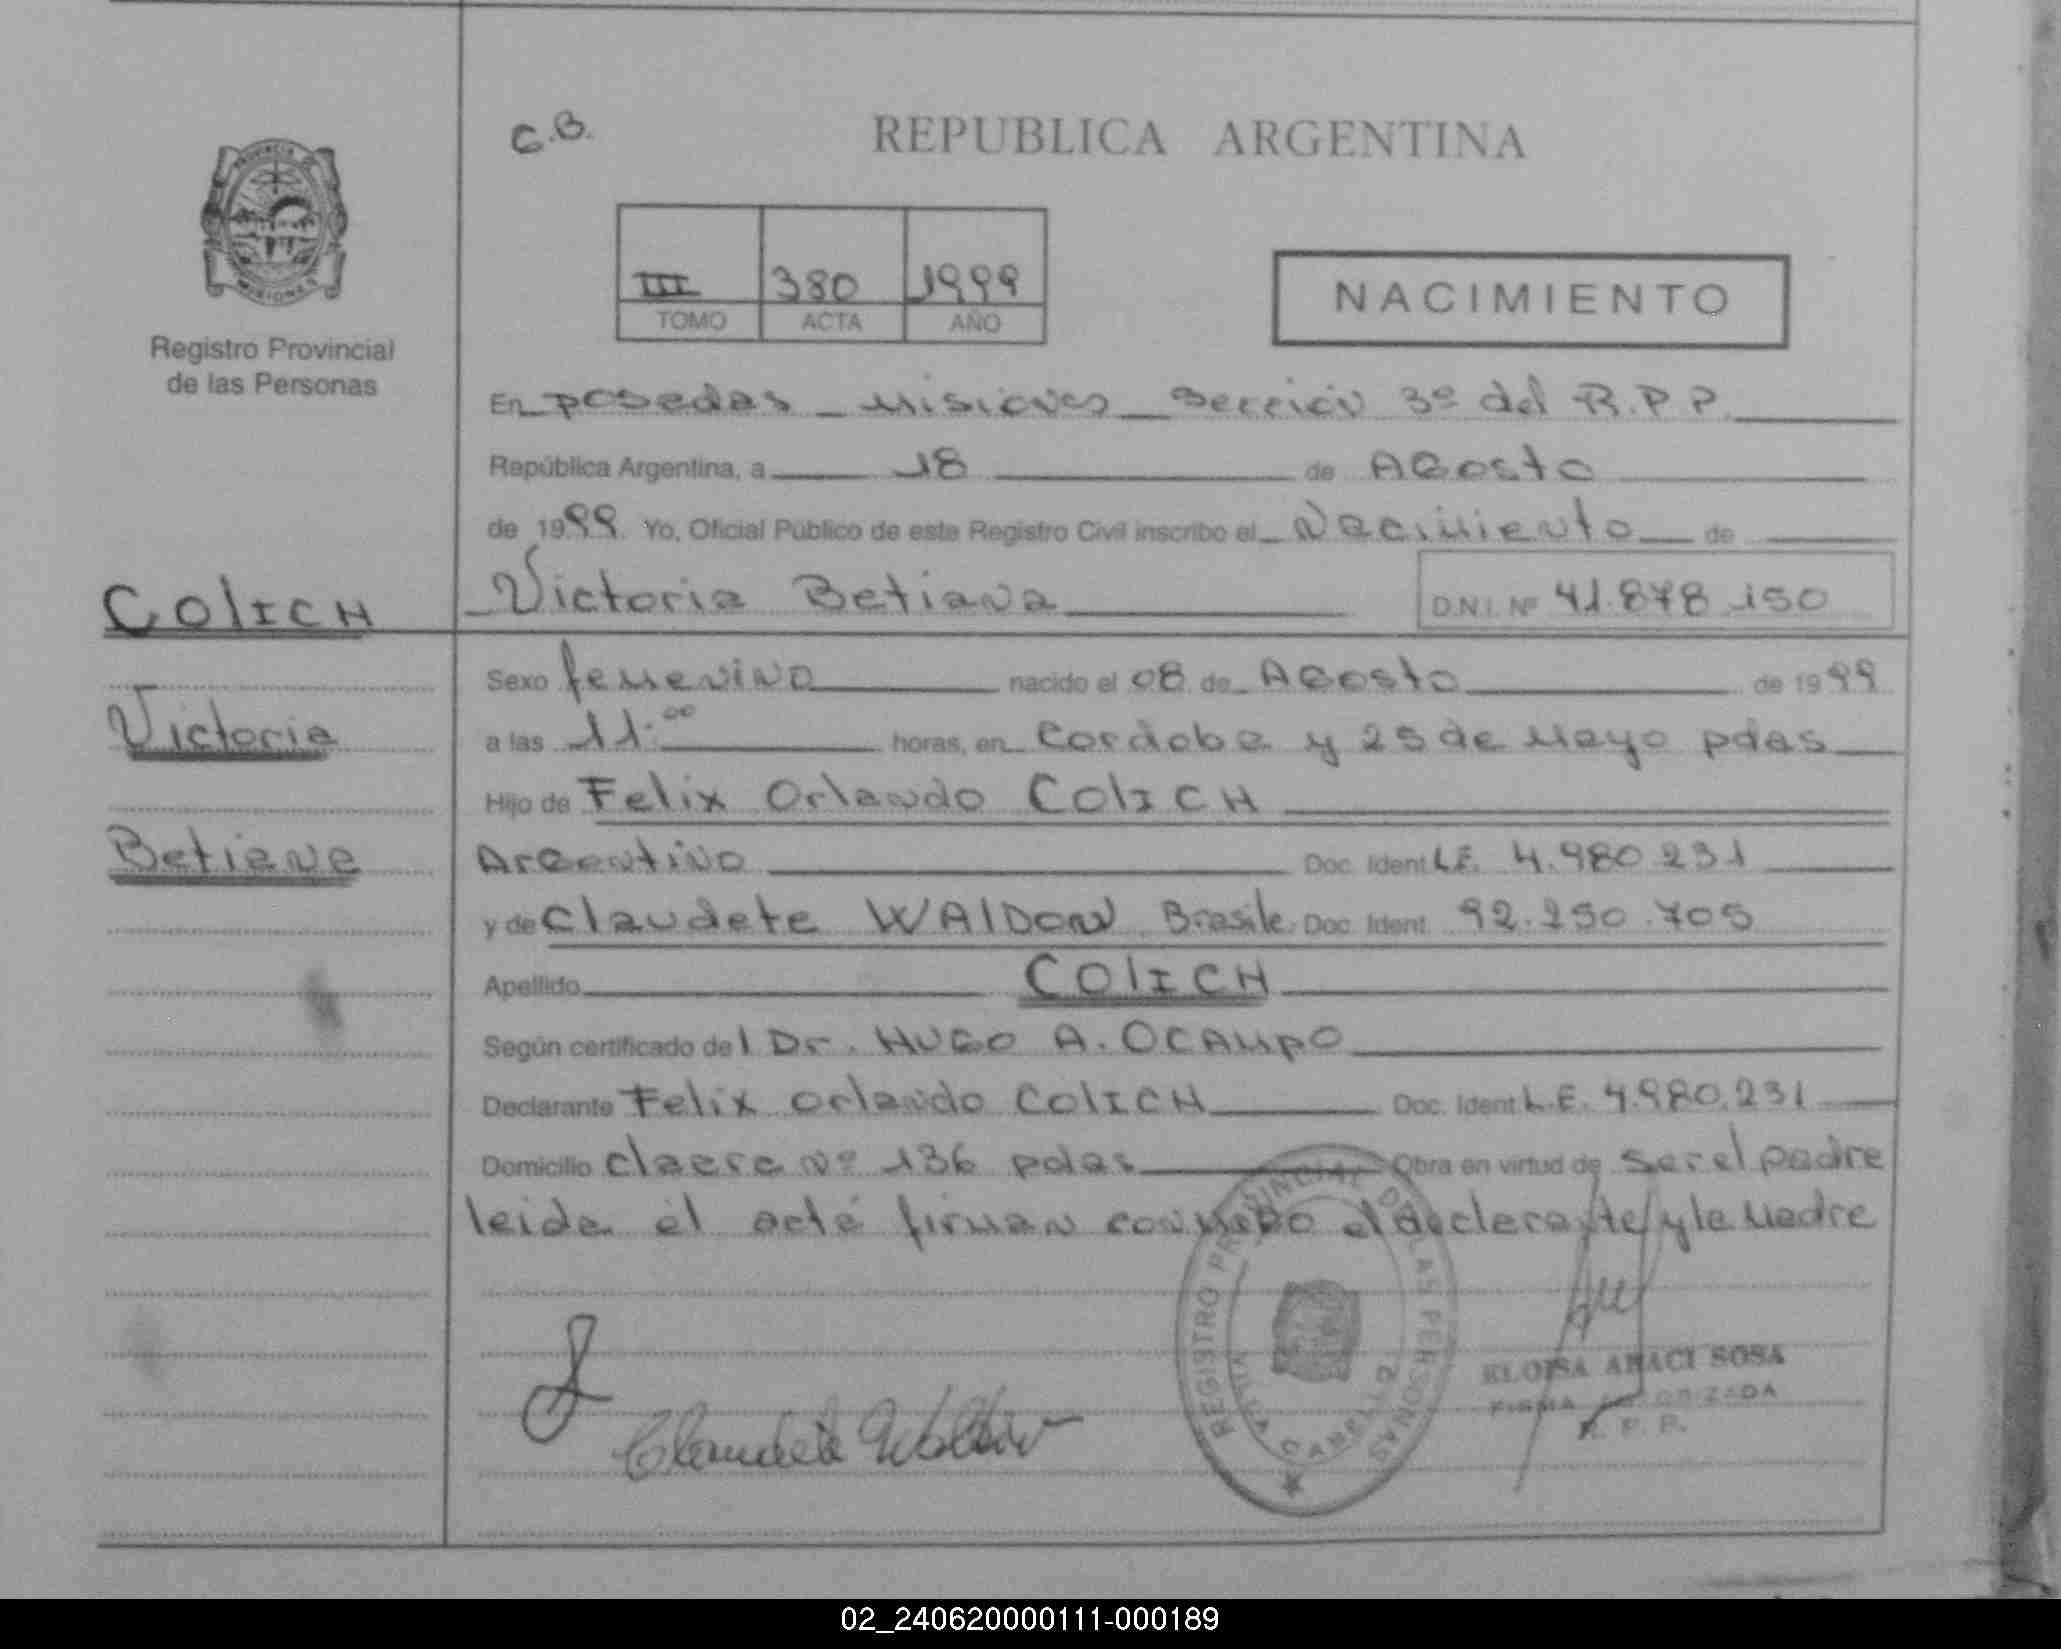 C.B.
REPUBLICA ARGENTINA
III 380 1999
TOMO ACTA AÑO
NACIMIENTO
PROVINCIA DE
MISIONES
Registro Provincial
de las Personas
En posadas _ Misiones _ Sección 3º del R.P.P.
República Argentina, a 18 de AGosto
de 1999 Yo, Oficial Público de este Registro Civil inscribo el Nacimiento de
Colich
Victoria
Betiana
Victoria Betiana
D.N.I. Nº 41.878.150
Sexo femenino nacido el 08 de AGosto de 1999
a las 11.00 horas, en Cordoba y 25 de Mayo pdas
Hijo de Felix Orlando ColICH
ArGentino Doc. Ident L.E. 4.980.231
y de Claudete WAlDOW Brasile. Doc. Ident. 92.250.705
Apellido ColICH
Según certificado del Dr. HUGO A. OCAMPO
Declarante Felix Orlando ColICH Doc. Ident L.E. 4.980.231
Domicilio Nº 136 pdas. Obra en virtud de ser el padre
leida el acta firman conmigo el declarante y la Madre
REGISTRO PROVINCIAL DE LAS PERSONAS
Claudete Waldow
ELOISA ARACI SOSA
FIRMA AUTORIZADA
R. P. P.
02_240620000111-000189